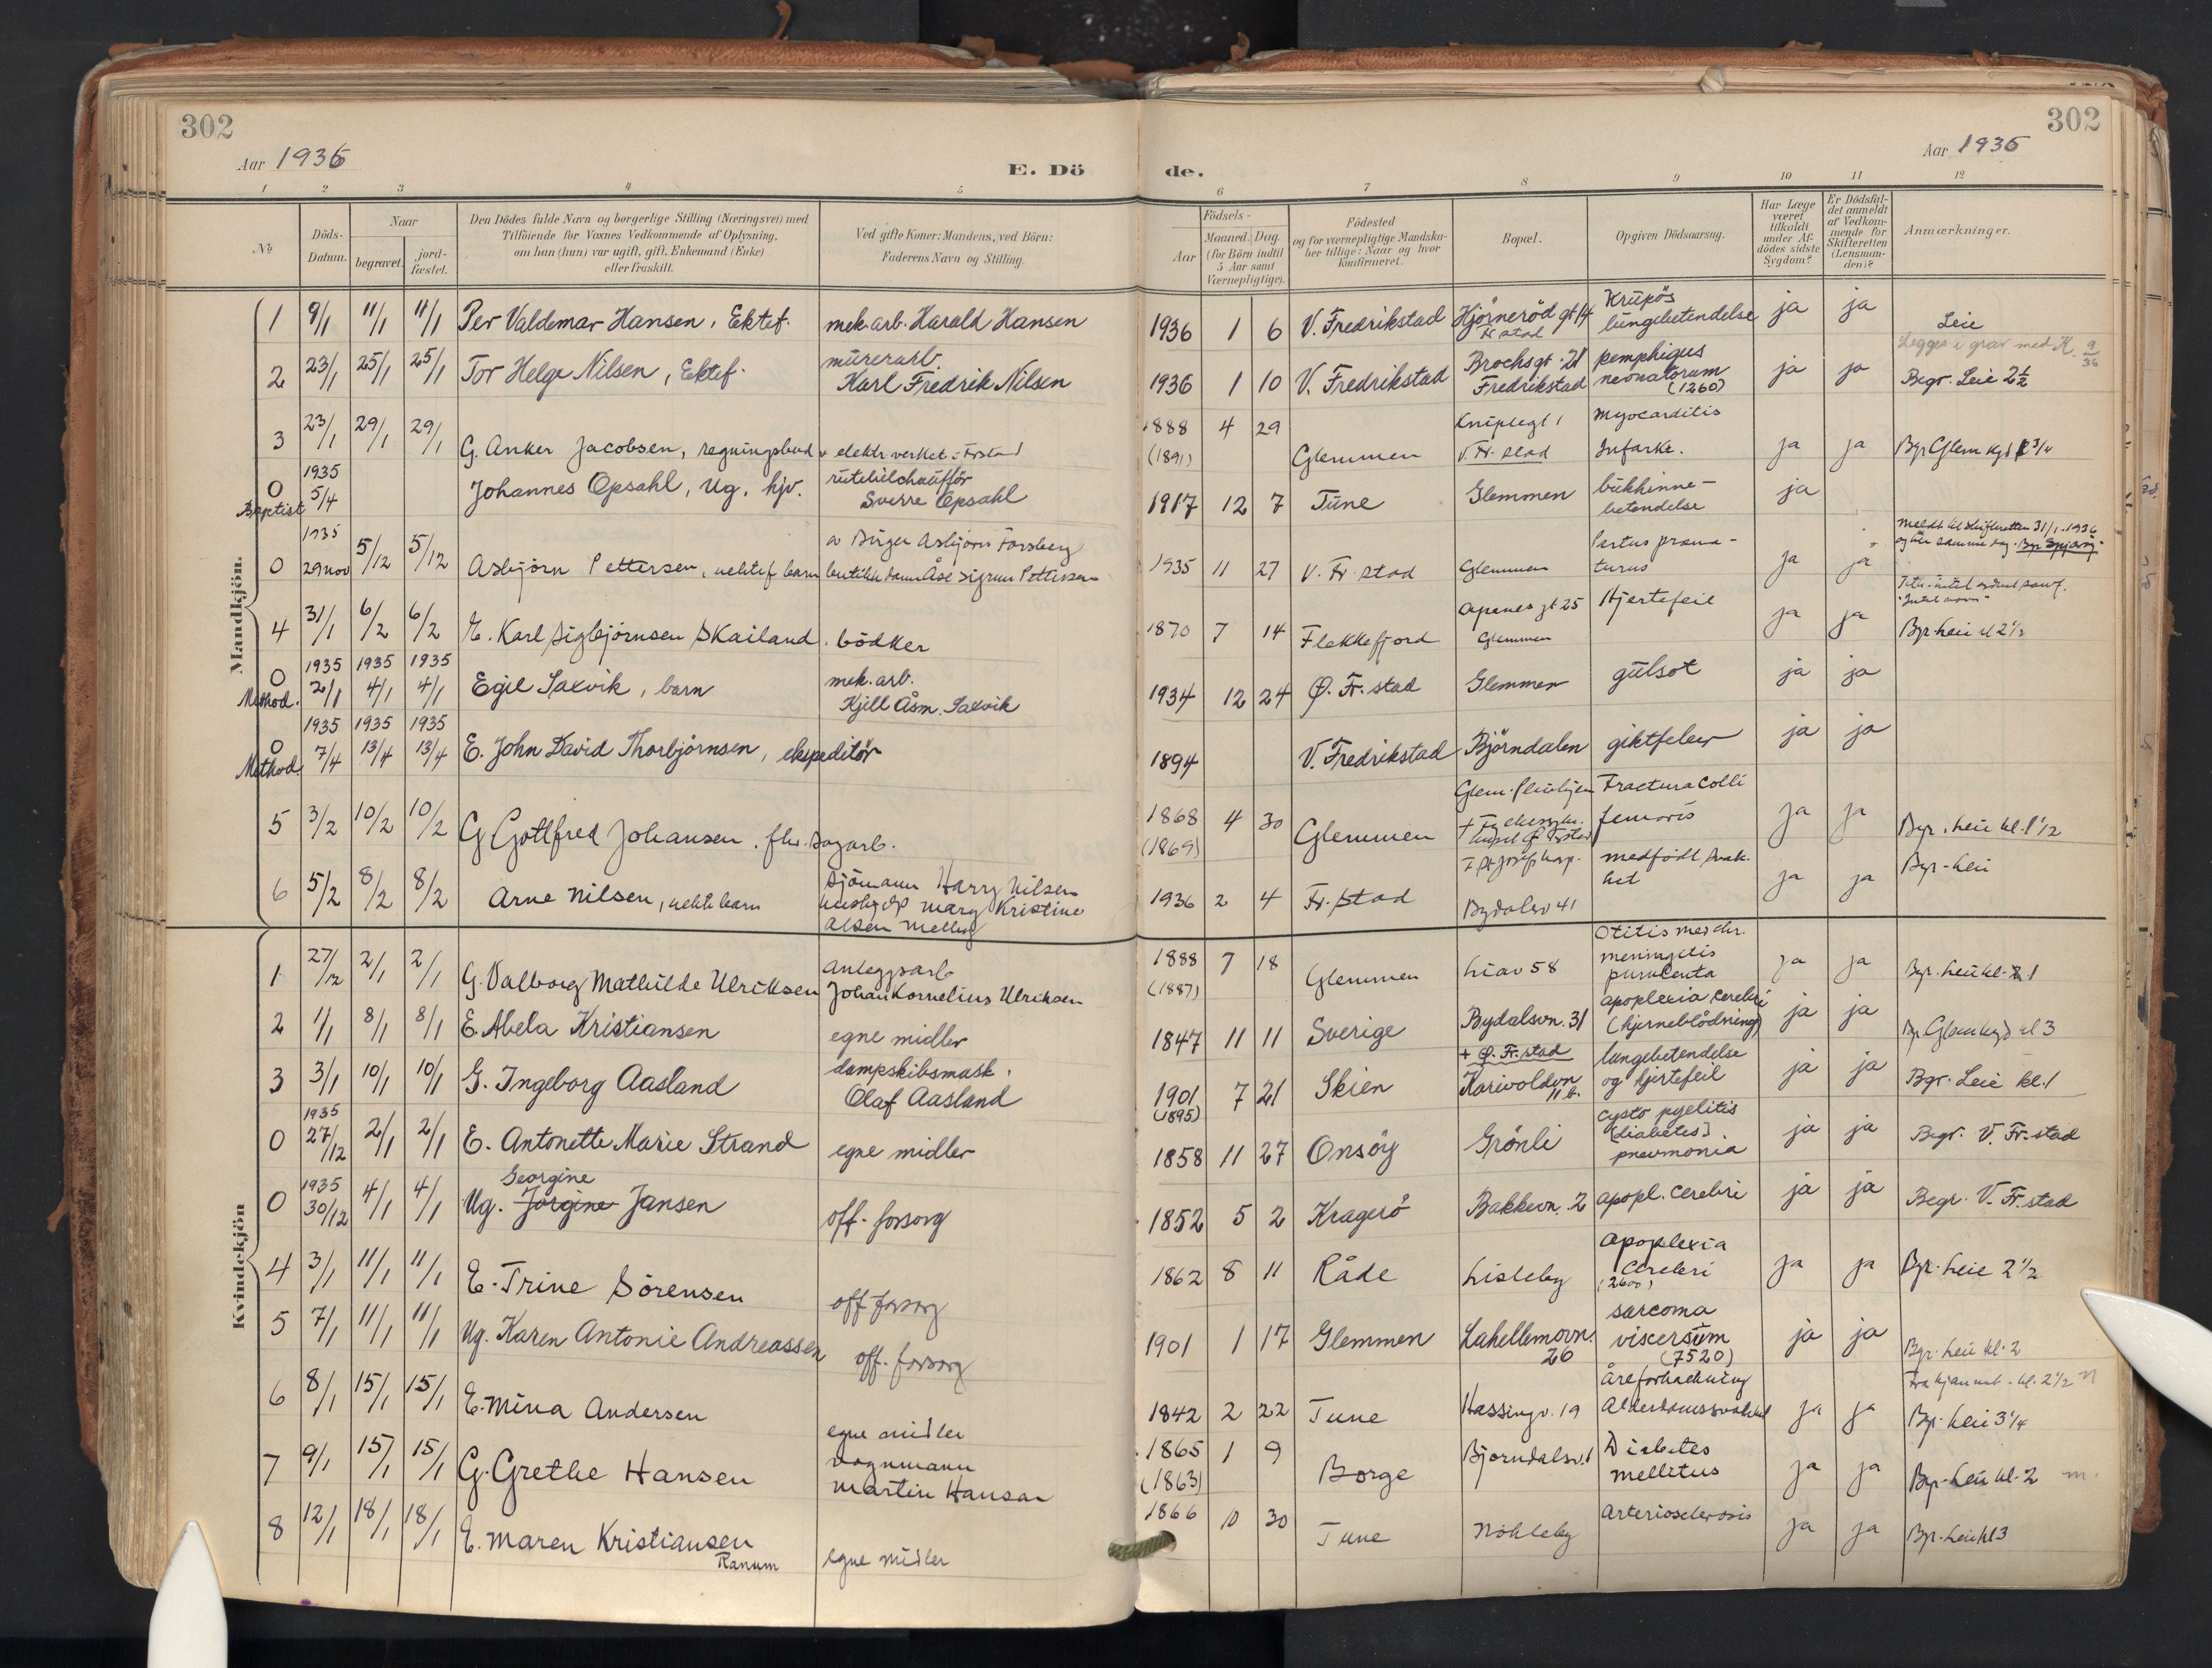 302
302
Aar 1936
E. Dö
de.
Aar 1936
1 2 3 4 5 6 7 8 9 10 11 12
No
Döds-Datum.
Naar
begravet.
jord-fæstet.
Den Dödes fulde Navn og borgerlige Stilling (Næringsvei) med
Tilföiende for Voxnes Vedkommende af Oplysning,
om han (hun) var ugift, gift, Enkemand (Enke)
eller fraskilt.
Ved gifte Koner: Mandens, ved Börn:
Faderens Navn og Stilling.
Födsels-
Aar
Maaned. Dag.
(for Börn indtil
5 Aar samt
Værnepligtige).
Födested
og for værnepligtige Mandska-
ber tillige: Naar og hvor
konfirmeret.
Bopæl.
Opgiven Dödsaarsag.
Har Læge
været
tilkaldt
under Af-
dödes sidste
Sygdom?
Er Dödsfal-
det anmeldt
af Vedkom-
mende for
Skifteretten
(Lensman-
den)?
Anmærkninger.
Mandkjön.
1 9/1 11/1 11/1 Per Valdemar Hansen, Ektef. mek. arb. Harald Hansen 1936 1 6 V. Fredrikstad Hjörneröd gt 14 Fr.stad Krupös lungebetendelse ja ja Leie
Legges i grav med K. 9/36
2 23/1 25/1 25/1 Tor Helge Nilsen, Ektef. murerarb. Karl Fredrik Nilsen 1936 1 10 V. Fredrikstad Brochsgt. 21 Fredrikstad pemphigus neonatorum (1260) ja ja Begr. Leie 2½
3 23/1 29/1 29/1 G. Anker Jacobsen, regningsbud v elektr verket - Frstad 1888 (1891) 4 29 Glemmen V. Fr. stad Myocarditis Infarkt. ja ja
0 Baptist 1935 5/4 Johannes Opsahl, Ug. hjv. rutebilchaufför Sverre Opsahl 1917 12 7 Tune Glemmen bukhinne-betendelse ja
0 1935 29 nov 5/12 5/12 Asbjörn Pettersen, uektef barn Birger Asbjörn Forsberg butikkdame Åse Sigrun Pettersen 1935 11 27 V. Fr. stad Glemmen Partus præma-turus ja ja
meldt til skifteretten 31/1-1936
4 31/1 6/2 6/2 E. Karl Sigbjörnsen Skailand. bödker 1870 7 14 Flekkefjord gt 25 Glemmen Hjertefeil ja ja Bgr. Leie kl 2½
0 Method. 1935 2/1 1935 4/1 1935 4/1 Egil Saxvik, barn mek. arb. Kjell Åsm. Saxvik 1934 12 24 Ø. Fr. stad Glemmen gulsot ja ja
0 Method. 1935 7/4 1935 13/4 1935 13/4 E. John David Thorbjörnsen, ekspeditör 1894 V. Fredrikstad Björndalen giktfeber ja ja
5 3/2 10/2 10/2 G Gottfred Johansen. fhv. sagarb. 1868 (1869) 4 30 Glemmen Fractura Colli femoris ja ja Bgr. Leie kl. 1½
6 5/2 8/2 8/2 Arne Nilsen, uekte barn sjömann Harry Nilsen hushj Mary Kristine Olsen 1936 2 4 Fr. stad Bydalsv 41 medfödt svak-het ja ja Bgr-Leie
Kvindekjön
1 27/12 2/1 2/1 G. Valborg Mathilde Ulriksen anleggsarb Johan Kornelius Ulriksen 1888 (1887) 7 18 Glemmen Liav 58 Otitis med chr. meningitis purulenta ja ja Bgr. Leie kl. 1
2 1/1 8/1 8/1 E. Abela Kristiansen egne midler 1847 11 11 Sverige Bydalsvn. 31 apoplexia cerebri (hjerneblödning) ja ja kl 3
3 3/1 10/1 10/1 G. Ingeborg Aasland dampskibsmask. Olaf Aasland 1901 (1895) 7 21 Skien + Ø. Fr. stad Karivoldvn 11 b. lungebetendelse og hjertefeil ja ja Bgr. Leie kl. 1
0 1935 27/12 2/1 2/1 E. Antonette Marie Strand egne midler 1858 11 27 Onsöy Grönli cysto pyelitis [diabetes] pneumonia ja ja Begr. V. Fr. stad
0 1935 30/12 4/1 4/1 Ug. Jörgine Georgine Jansen off. forsorg 1852 5 2 Kragerö Bakkevn. 2 apopl. cerebri ja ja Begr. V. Fr. stad
4 3/1 11/1 11/1 E. Trine Sörensen off forsorg 1862 8 11 Råde Lisleby apoplexia cerebri (2600) ja ja Bgr. Leie 2½
5 7/1 11/1 11/1 Ug. Karen Antonie Andreassen off. forsorg 1901 1 17 Glemmen Lahellemovn. 26 sarcoma viscersum (7520) ja ja Bgr. Leie kl. 2
6 8/1 15/1 15/1 E. Mina Andersen egne midler 1842 2 22 Tune Hassingv. 19 åreforkalkning ja ja Bgr. Leie 3¼
7 9/1 15/1 15/1 G. Grethe Hansen vognmann Martin Hansen 1865 (1863) 1 9 Borge Björndalsv. 1 Diabetes mellitus ja ja Bgr. Leie kl. 2 m.
8 12/1 18/1 18/1 E. Maren Kristiansen Ranum egne midler 1866 10 30 Tune Nökleby Arteriosclerosis ja ja Bgr. Leie kl 3